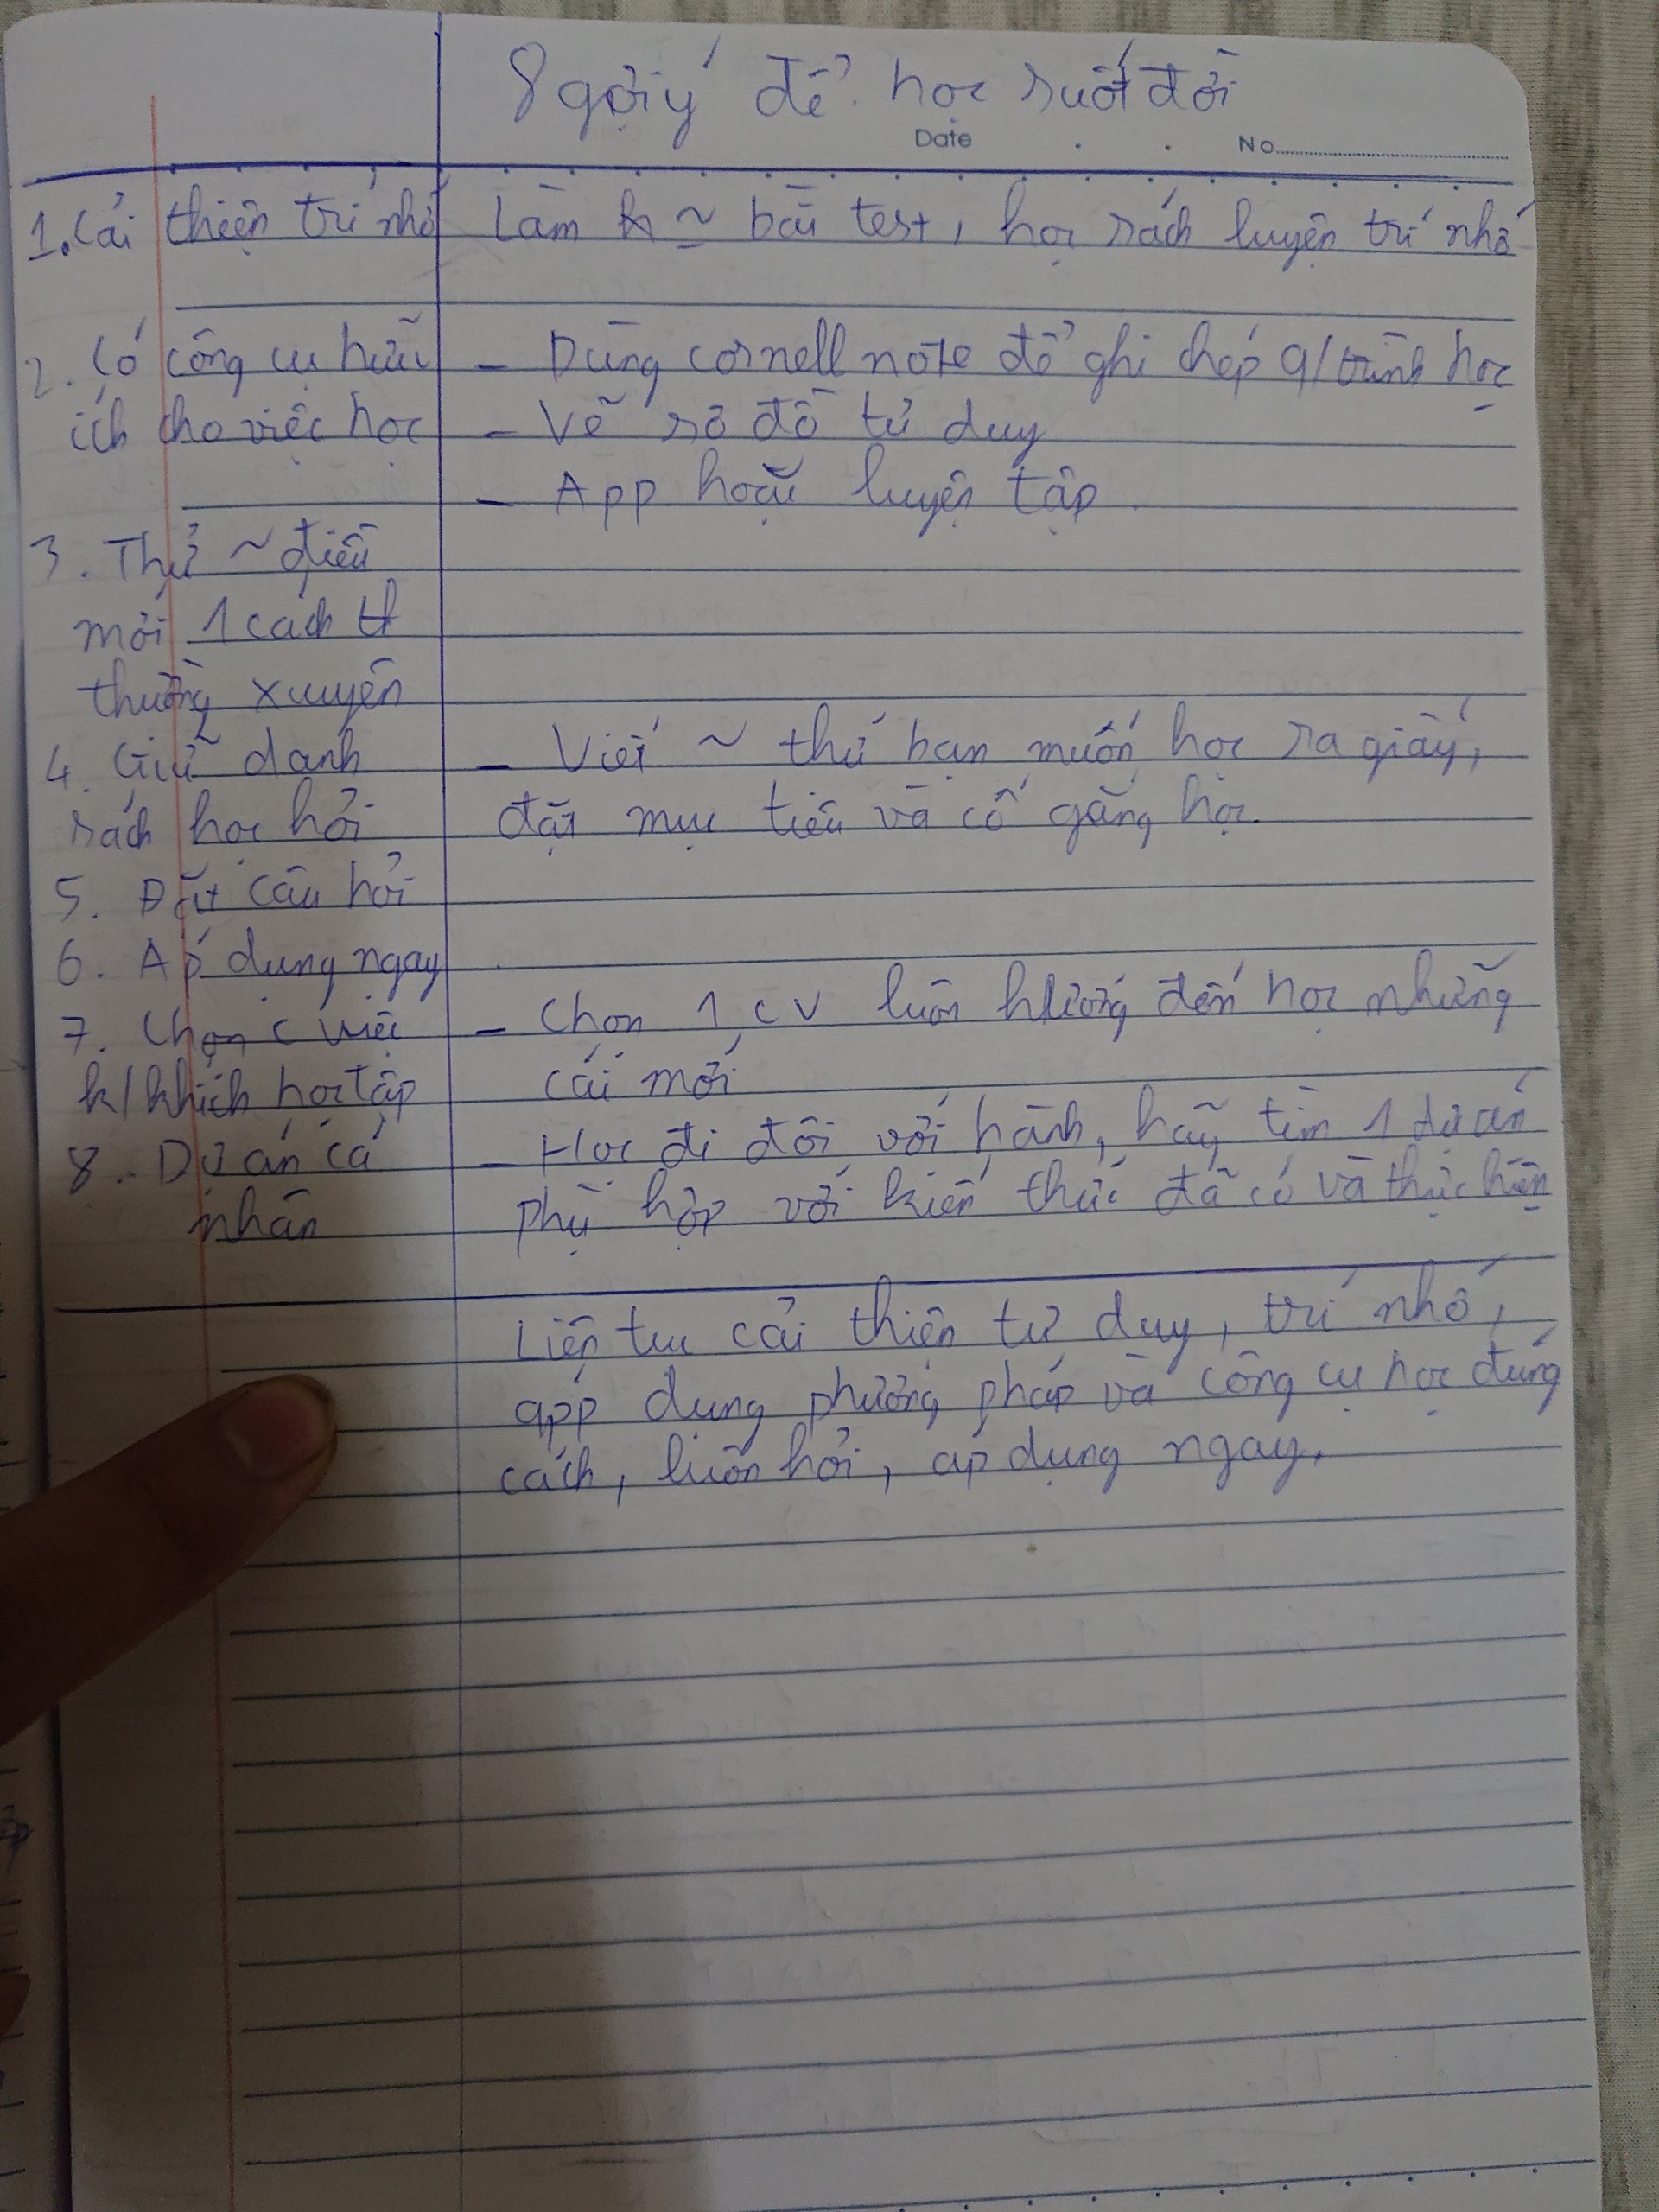 8 gợi ý để học suốt đời
Date . . No
1. Cải thiện trí nhớ Làm ~ bài test, học sách luyện trí nhớ
2. Có công cụ hữu - Dùng cornell note để ghi chép q/trình học
ích cho việc học - Vẽ sơ đồ tư duy
- App luyện tập
3. Thử ~ điều
mới 1 cách
thường xuyên
4. Giữ danh - Viết ~ thứ bạn muốn học ra giấy,
sách học hỏi đặt mục tiêu và cố gắng học.
5. Đặt câu hỏi
6. Áp dụng ngay
7. Chọn c việc - Chọn 1 cv luôn hướng đến học những
k/khích học tập cái mới
8. Dự án cá - Học đi đôi với hành, hãy tìm 1 dự án
nhân phù hợp với kiến thức đã có và thực hiện
Liên tục cải thiện tư duy, trí nhớ,
áp dụng phương pháp và công cụ học đúng
cách, luôn hỏi, áp dụng ngay.